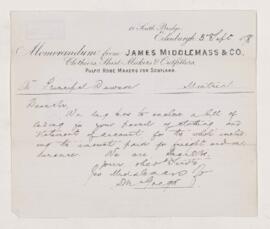 18 South Bridge,
Edinburgh, 3 Sept 188
Memorandum from JAMES MIDDLEMASS & CO.
Clothiers, Shirt Makers & Outfitters.
PULPIT ROBE MAKERS FOR SCOTLAND.
To Principal Dawson Montreal
Dear Sir
We beg to enclose a bill of
lading in your parcel of clothing and
statement of account for the whole includ
ing the amount paid for freight and in
surance. We are
your obed. Servts
James Middlemass & Co